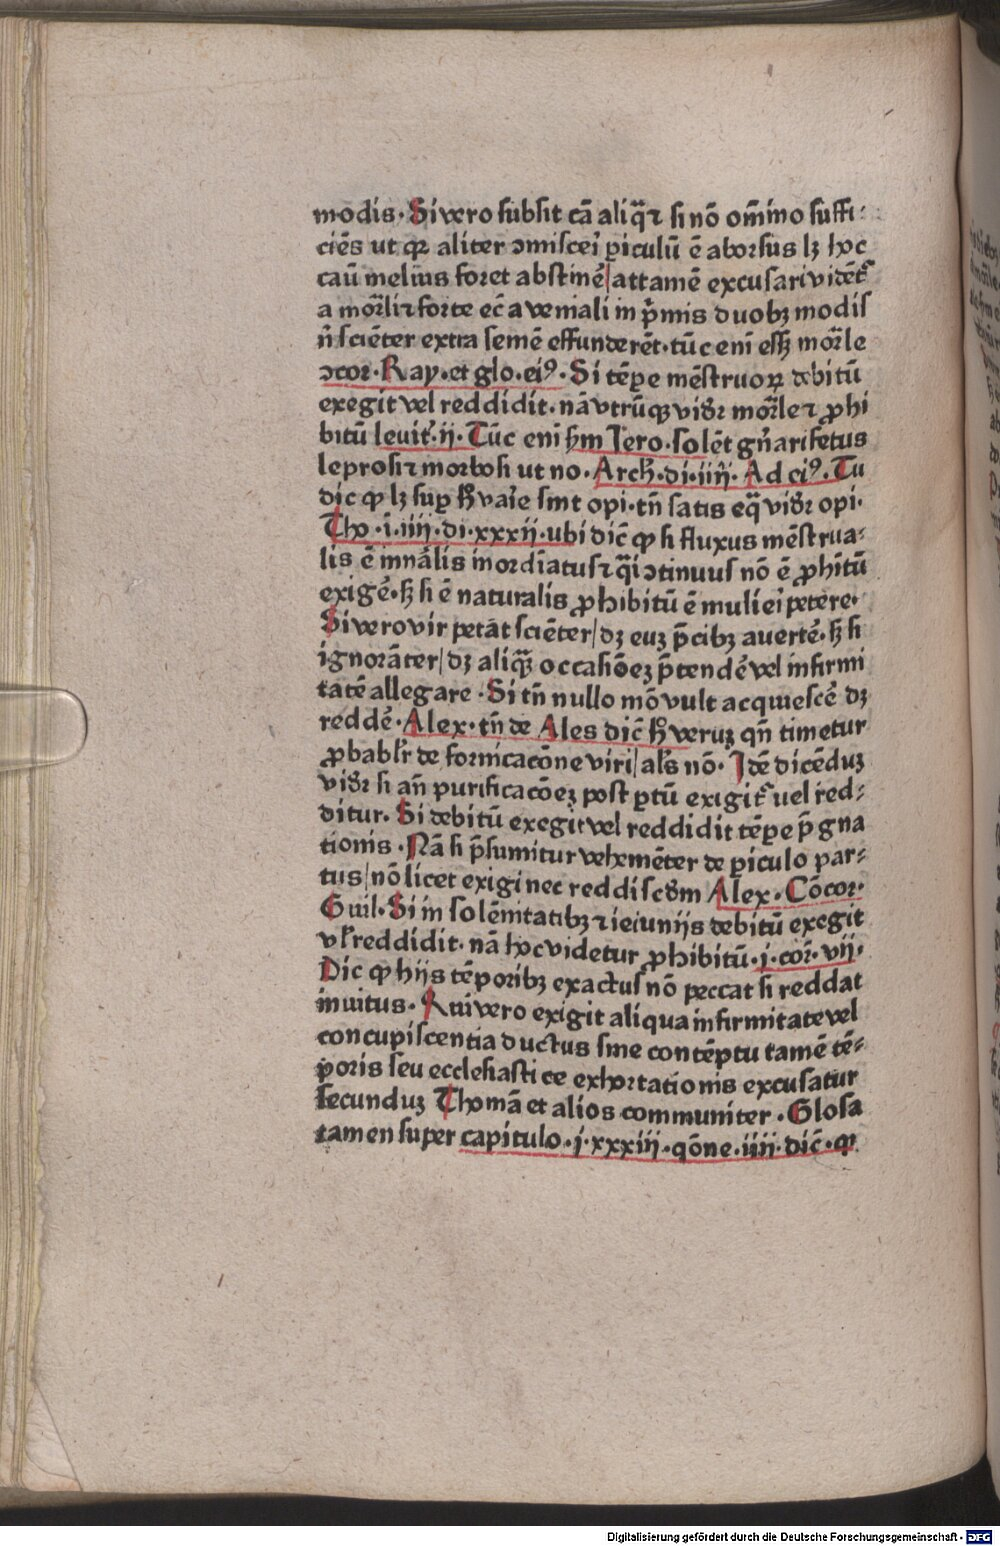 modis. Si vero subsit cā aliq̄ꝛ si nō om̄ino suffi:
ciēs ut qꝛ aliter ɔmisceı̄ ꝑiculū ē aborsus lꝫ hoc
caū melius foret abstinē/attamē excusari vidēt᷑
a mor̄li ꝛ forte ec̄ a veniali in p̄mis duobꝫ modis
n̄ sciēter extra semē effunderēt. tūc enī eſſꝫ mor̄le
ɔcor. Ray. et glo. eiꝰ. Si tēpe mēstruoꝝ debitū
exegit vel reddidit. nā vtrūqꝫ vidr̄ mor̄le ꝛ ꝓhi
bitū leuit̄. ij. Tūc enī ẜm Jero. solēt gn̄ari fetus
leprosi ꝛ morbosi ut no. Arch. di. iiij. Ad eiꝰ. Tu
dic ꝙ lꝫ suꝑ h̄ vaı̄e sint opi. tn̄ satis eq̄ vidr̄ opi.
Tho. i. iiij. di. xxxij. ubi dic̄ ꝙ si fluxus mēstrua:
lis ē innālis inordiatus ꝛ q̄i ɔtinuus nō ē ꝓhitū
exigē. sꝫ si ē naturalis ꝓhibitū ē mulieı̄ petere.
Si vero vir petāt sciēter/dꝫ euꝫ p̄cibꝫ auertē. sꝫ si
ignorāter/dꝫ aliq̄ꝫ occasiōeꝫ p̄tendē vel infirmi
tatē allegare. Si tn̄ nullo mō vult acquiescē dꝫ
reddē. Alex. tn̄ de Ales dic̄ h̄ veruꝫ qn̄ timetur
ꝓbablr̄ de fornicacōne viri/als̄ nō. Jdē dicēduꝫ
vidr̄ si an̄ purificacōeꝫ post ꝑtū exigit᷑ uel red:
ditur. Si debitū exegit vel reddidit tēpe p̄gna
tionis. Nā si p̄sumitur vehemēter de ꝑiculo par:
tus/nō licet exigi nec reddi scdm Alex. Cōcor.
Guil. Si in solēnitatibꝫ ꝛ ieiunijs debitū exegit
vl̄ reddidit. nā hoc videtur ꝓhibitū. j. cor̄. vij.
Dic ꝙ hijs tēporibꝫ exactus nō peccat si reddat
inuitus. Qui vero exigit aliqua infirmitate vel
concupiscentia ductus sine contēptu tamē tē:
poris seu ecclesiastice exhortationis excusatur
secunduꝫ Thomā et alios communiter. Glosa
tamen super capitulo. j. xxxiij. qōne. iiij. dic̄. ꝙ
Digitalisierung gefördert durch die Deutsche Forschungsgemeinschaft - DFG